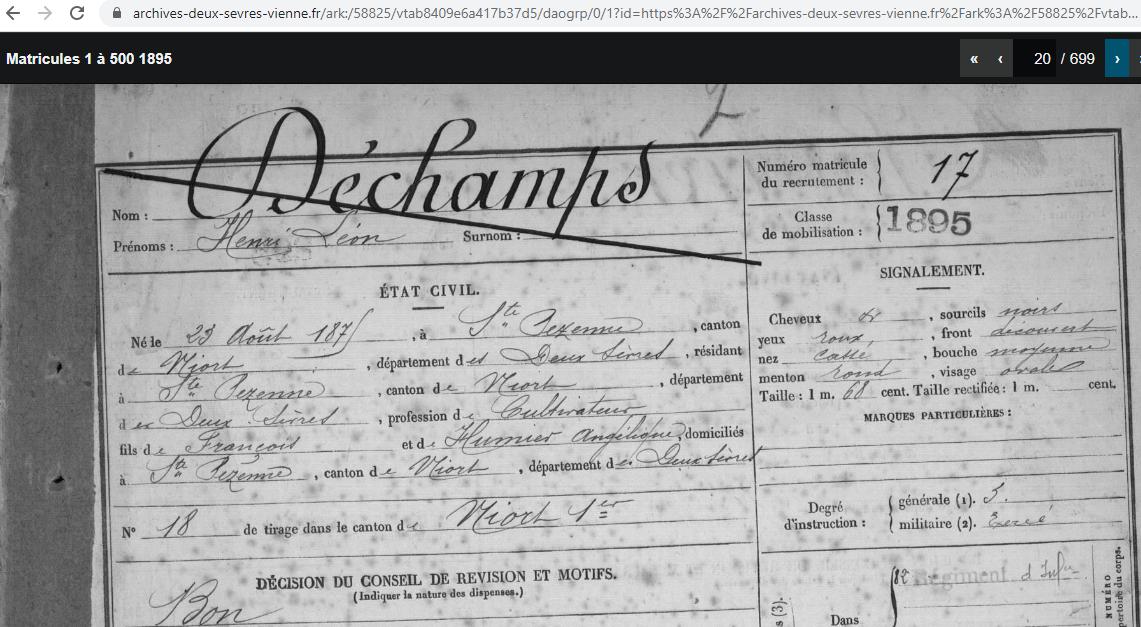 archives-deux-sevres-vienne.fr/ark:/58825/vtab8409e6a417b37d5/daogrp/0/1?id=https%3A%2F%2Farchives-deux-sevres-vienne.fr%2Fark%3A%2F58825%2Fvtab...
Matricules 1 à 500 1895
« ‹ 20 / 699 ›
2
Nom : Déchamps
Prénoms : Henri Léon Surnom :
Numéro matricule du recrutement : 17
Classe de mobilisation : 1895
ÉTAT CIVIL.
Né le 23 Août 187 , à Ste Pezenne , canton
de Niort , département des Deux Sèvres , résidant
à Ste Pezenne , canton de Niort , département
des Deux Sèvres , profession de Cultivateur
fils de François et de Humier Angélique , domiciliés
à Ste Pezenne , canton de Niort , département des Deux Sèvres
N° 18 de tirage dans le canton de Niort 1er
DÉCISION DU CONSEIL DE REVISION ET MOTIFS.
(Indiquer la nature des dispenses.)
Bon
SIGNALEMENT.
Cheveux , sourcils noirs
yeux roux , front découvert
nez , bouche moyenne
menton rond , visage ovale
Taille : 1 m. 68 cent. Taille rectifiée : 1 m. cent.
MARQUES PARTICULIÈRES :
Degré d'instruction : générale (1). 3.
militaire (2). Exercé
Régiment d'Infie
Dans
s (3).
NUMÉRO
pertoire du corps.